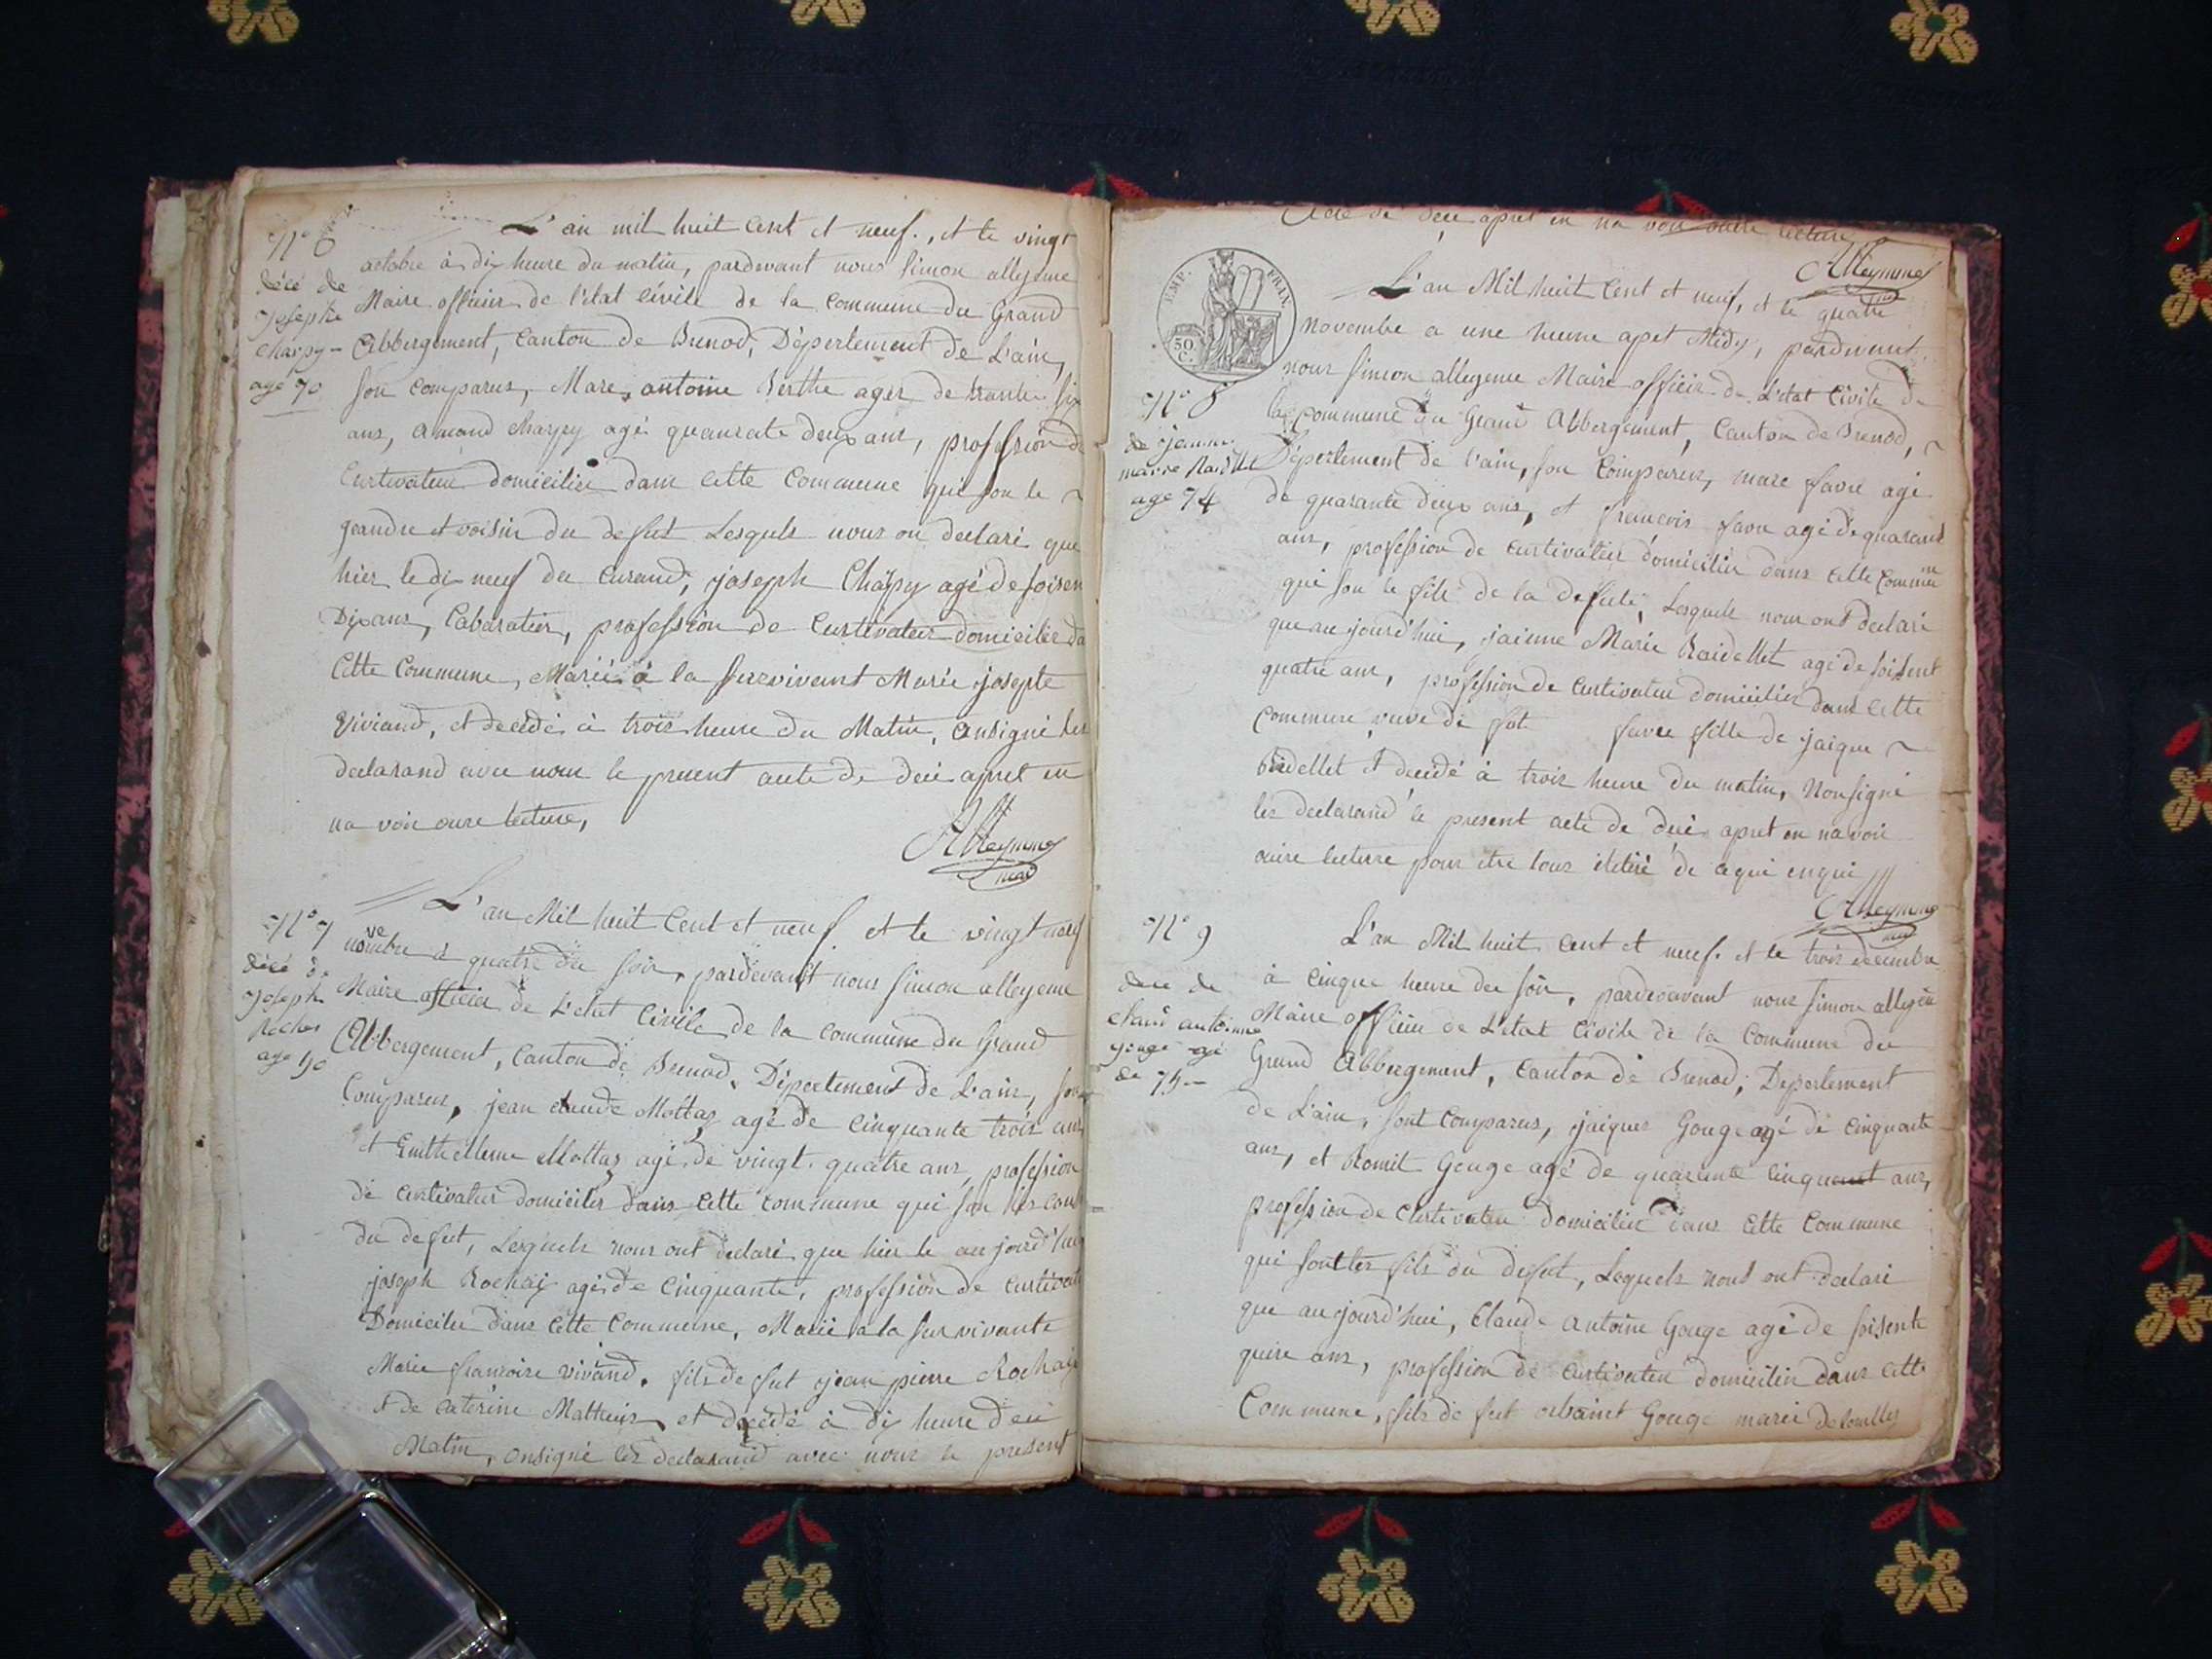 N° 6
décé de
Josephe
Charpy
agé 70
L'an mil huit cent et neuf, et le vingt
octobre à dix heure du matin, pardevant nous simon alleyeme
Maire officier de l'état civile de la commune du Grand
Abbergement, Canton de Brenod, Département de L'ain,
son comparus, Marc antoine Berthe ager de trante six
ans, amand charpy agé quaurate deux ans, profession de
Curtivateur domicilié dans cette Commune qui son le
jeandre et voisin du defut Lesquels nous on declaré que
hier le dix neuf du Curand, joseph Chapy agé de soisen
Dix ans, Cabaratier, profession de Curtivateur domicilié da
Cette Commune, Marié à la survivant Marie josepte
Viviand, et decédé à trois heure du Matin, ansigné les
declarand avec nour le presnt acte de decé apret en
na voir oure lecture,
Alleymme
mai
N° 7
décé de
Joseph
Rochai
age 50
L'an Mil huit Cent et neuf. et le vingt neuf
novembre à quatre du soir, pardevant nous simon alleyeme
Maire officier de L'etat Civile de la commune du Grand
Abbergement, Canton de Brenod, Département de L'ain, son
Comparus, jean claude Mottaz agé de Cinquante trois ans
et Guillielleme Mottaz agé de vingt quatre ans, profession
de curtivateur domicilier dans cette commune qui son les cous
du defut, Lesquels nous ont declaré que hier le au jourd'hui
joseph Rochaix agé de Cinquante, profession de curtivate
Domicilié dans cette Commune, Marié a la survivante
Marie francoise vivand, fils de fut jean pierre Rochaix
et de caterine Mathieux, et decédé à dix heure deu
Matin, onsigné les declarand avec nour le présent
Acte de decé apret en na voir oure lecture
Alleymme
EMP. FRAN.
50 C.
N° 8
de jeanne
marie Raidellet
age 74
L'an Mil huit Cent et neuf, et le quatre
novembre a une heure apret Midy, pardevant
nour simon alleyeme Maire officier de L'etat Civile de
la commune du Grand Abbergement, Canton de Brenod,
Département de l'ain, son Comparus, marc favre agé
de quarante deux ans, et francois favre agé de quarant
ans, profession de curtivateur domicilier dans cette Commune
qui son le fils de la defute, Lesquels nour ont declaré
que au jourd'hui, jaienne Marie Raidellet agé de soisent
quatre ans, profession de curtivateur domicilier dans cette
commune, veuve de fut favre fille de jaique
Raidellet et decédé à trois heure du matin, Non signé
les declarand le present acte de decé apret en na voir
ouire lecture pour etre tous illetiré de ce qui enqui
Alleymme
mai
N° 9
dece de
claud antoinne
gouge agé
de 75
L'an Mil huit cent et neuf. et le trois décembre
à cinque heure du soir, pardevavant nour simon alleyem
Maire officier de L'etat Civile de la Commune du
Grand Abbergement, Canton de Brenod, Département
de L'ain, sont comparus, jaiques Gouge agé de Cinquante
ans, et Romit Gouge agé de quarante cinquant ans,
profession de Curtivateur domicilier dans cette Commune
qui sont les fils du defut, Lequels nous ont declaré
que au jourd'hui, Claude antoine Gouge agé de soisente
quise ans, profession de curtivateu domicilier dans cette
Commune, fils de fut Gouge marié